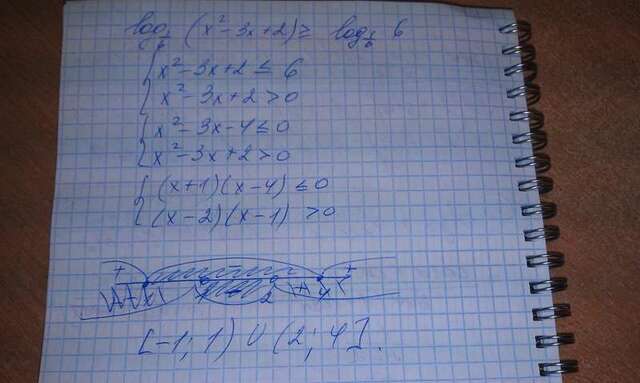 log_{1/6} (x² - 3x + 2) ≥ log_{1/6} 6
{ x² - 3x + 2 ≤ 6
x² - 3x + 2 > 0
{ x² - 3x - 4 ≤ 0
x² - 3x + 2 > 0
{ (x+1)(x-4) ≤ 0
(x-2)(x-1) > 0
+ - +
1 2 4
[-1; 1) ∪ (2; 4].